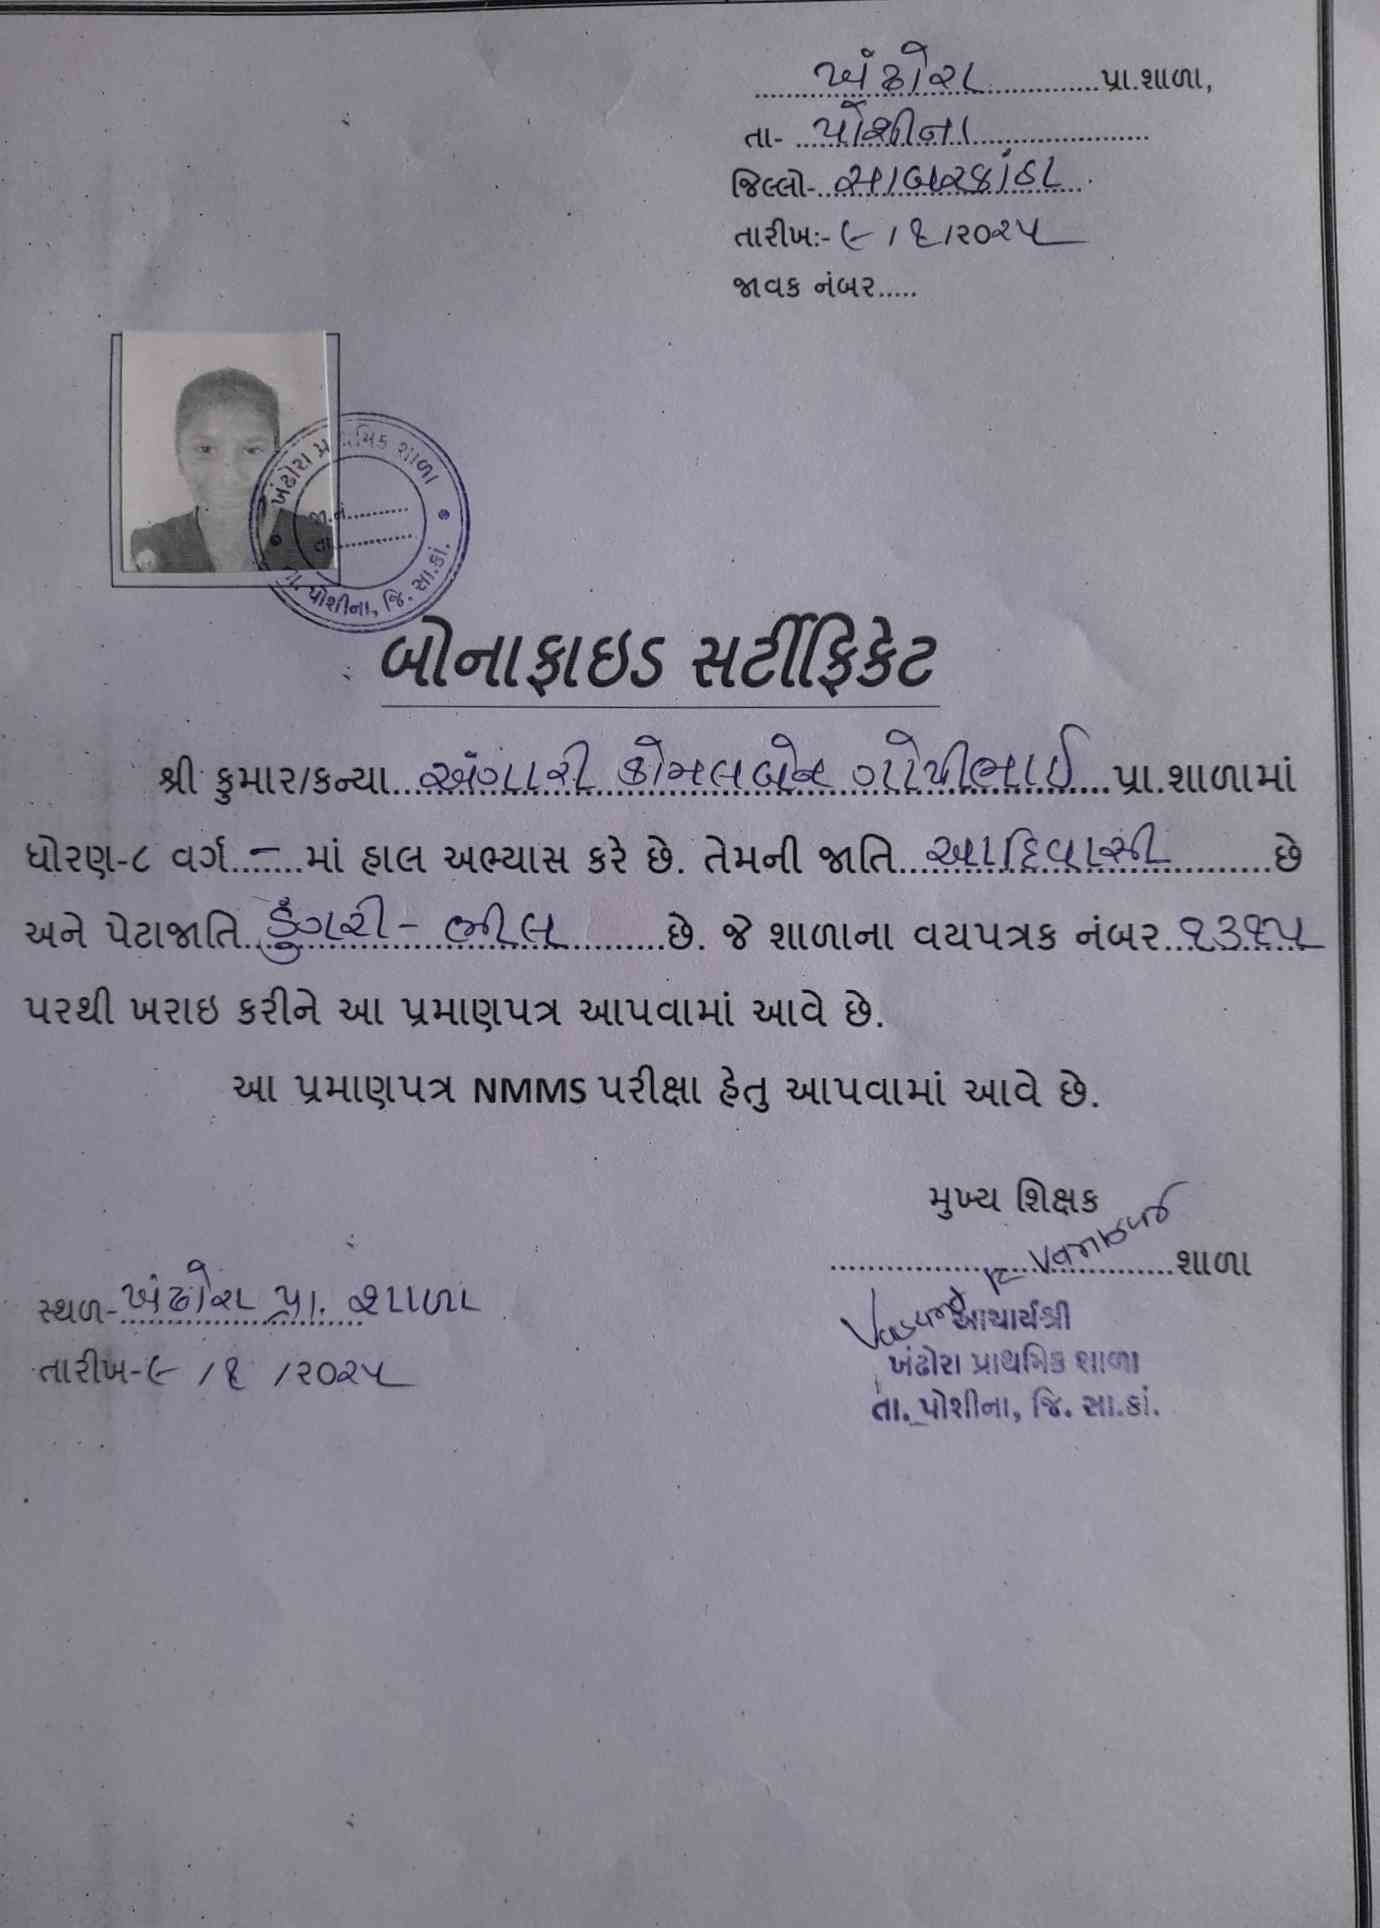 ખંઢોરા પ્રા.શાળા,
તા- પોશીના
જિલ્લો- સાબરકાંઠા
તારીખ:- ૯ / ૧ / ૨૦૨૫
જાવક નંબર.....
ખંઢોરા પ્રાથમિક શાળા
જા.નં.
તા.
તા. પોશીના, જિ. સા.કાં.
બોનાફાઇડ સર્ટીફિકેટ
શ્રી કુમાર/કન્યા અંગારી કોમલબેન ગોપીભાઈ પ્રા.શાળામાં
ધોરણ-૮ વર્ગ - માં હાલ અભ્યાસ કરે છે. તેમની જાતિ આદિવાસી છે
અને પેટાજાતિ ડુંગરી - ભીલ છે. જે શાળાના વયપત્રક નંબર ૧૩૧૫
પરથી ખરાઇ કરીને આ પ્રમાણપત્ર આપવામાં આવે છે.
આ પ્રમાણપત્ર NMMS પરીક્ષા હેતુ આપવામાં આવે છે.
મુખ્ય શિક્ષક
શાળા
આચાર્યશ્રી
ખંઢોરા પ્રાથમિક શાળા
તા. પોશીના, જિ. સા.કાં.
સ્થળ- ખંઢોરા પ્રા. શાળા
તારીખ- ૯ / ૧ / ૨૦૨૫